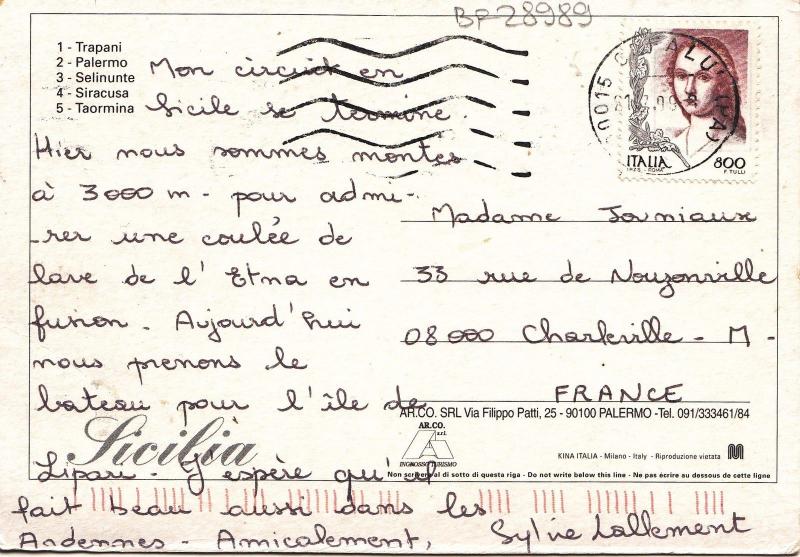 BF28989
1 - Trapani
2 - Palermo
3 - Selinunte
4 - Siracusa
5 - Taormina
Mon circuit en
Sicile se termine.
Hier nous sommes montés
à 3000 m - pour admi-
-rer une coulée de
lave de l'Etna en
fusion. Aujourd'hui
nous prenons le
bateau pour l'île de
Lipari. J'espère qu'il
fait beau aussi dans les
Ardennes - Amicalement,
Sylvie Lallement
ITALIA 800
I.P.Z.S. - ROMA F. TULLI
Madame Jouniaux
33 rue de Nouzonville
08000 Charleville - M -
FRANCE
AR.CO. SRL Via Filippo Patti, 25 - 90100 PALERMO -Tel. 091/333461/84
AR.CO.
s.r.l.
INGROSSO TURISMO
KINA ITALIA - Milano - Italy - Riproduzione vietata
Sicilia
Non scrivere al di sotto di questa riga - Do not write below this line - Ne pas écrire au dessous de cette ligne